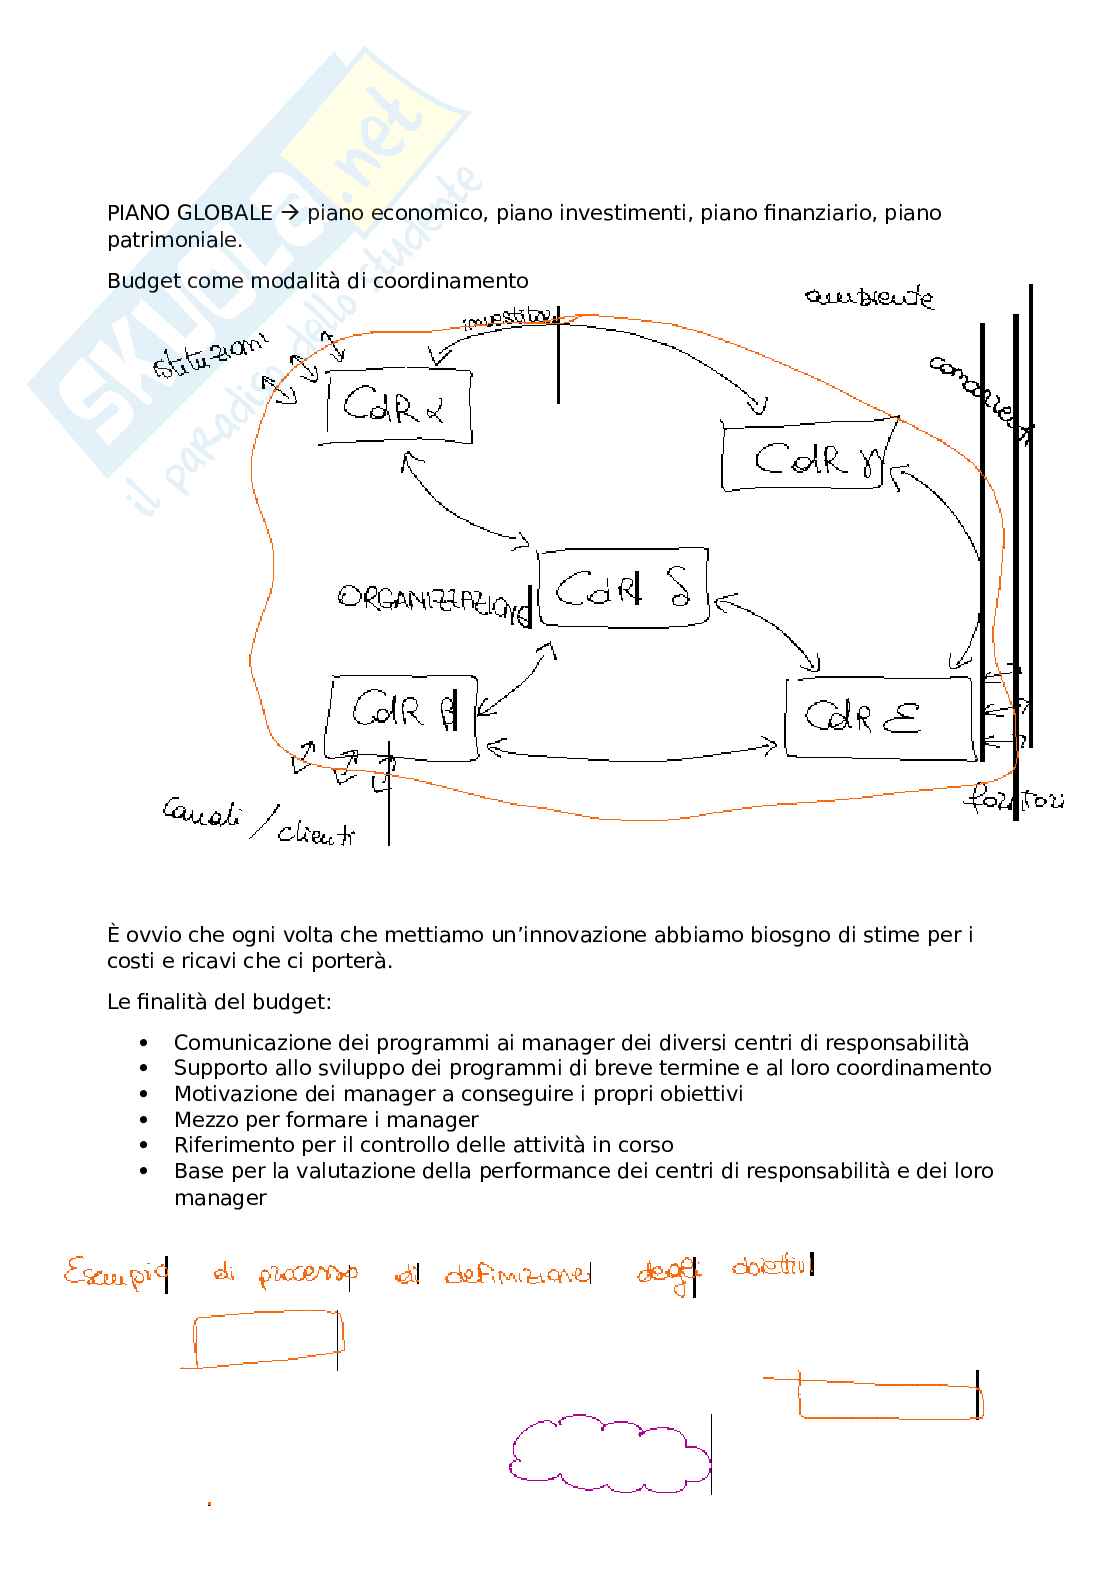 SKUOLA.net
il paradiso dello studente
PIANO GLOBALE → piano economico, piano investimenti, piano finanziario, piano
patrimoniale.
Budget come modalità di coordinamento
ambiente
investitori
istituzioni
concorrenti
CdR α
CdR γ
ORGANIZZAZIONE
CdR δ
CdR β
CdR ε
fornitori
canali / clienti
È ovvio che ogni volta che mettiamo un’innovazione abbiamo biosgno di stime per i
costi e ricavi che ci porterà.
Le finalità del budget:
• Comunicazione dei programmi ai manager dei diversi centri di responsabilità
• Supporto allo sviluppo dei programmi di breve termine e al loro coordinamento
• Motivazione dei manager a conseguire i propri obiettivi
• Mezzo per formare i manager
• Riferimento per il controllo delle attività in corso
• Base per la valutazione della performance dei centri di responsabilità e dei loro
manager
Esempio di processo di definizione degli obiettivi